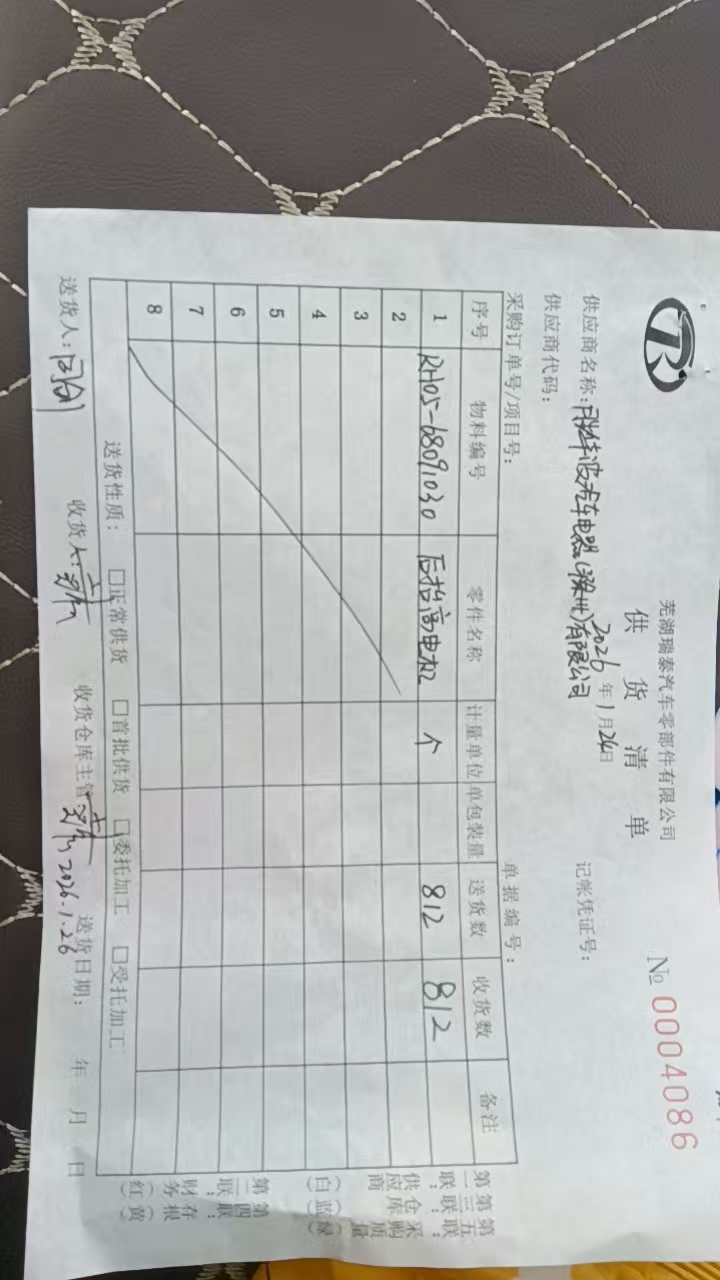 芜湖瑞泰汽车零部件有限公司
供货清单
№ 0004086
2026年1月24日
供应商名称: 有限公司
记帐凭证号:
供应商代码:
采购订单号/项目号:
单据编号:
序号 物料编号 零件名称 计量单位 单包装量 送货数 收货数 备注
1 RH05-68091030 后抬高电机 个 812 812
2
3
4
5
6
7
8
送货性质: □正常供货 □首批供货 □委托加工 □受托加工
送货人: 收货人: 收货仓库主管 2026.1.26 送货日期: 年 月 日
第一联:供应商(白)
第二联:财务(红)
第三联:仓库(蓝)
第四联:存根(黄)
第五联:采购 质量(绿)